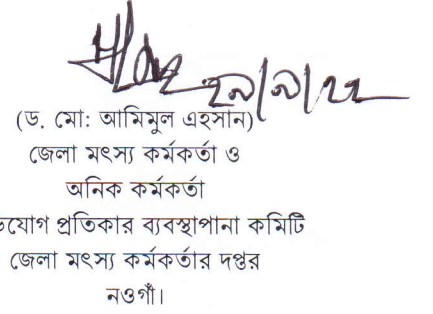 ২৯/৯/২২
(ড. মো: আমিমুল এহসান)
জেলা মৎস্য কর্মকর্তা ও
অনিক কর্মকর্তা
প্রতিকার ব্যবস্থাপানা কমিটি
জেলা মৎস্য কর্মকর্তার দপ্তর
নওগাঁ।